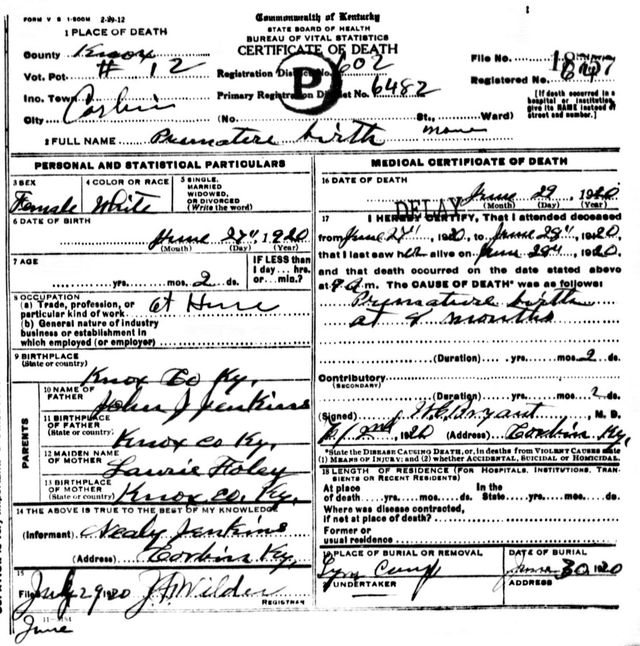 FORM V S 1-500M 2-29-12
Commonwealth of Kentucky
STATE BOARD OF HEALTH
BUREAU OF VITAL STATISTICS
CERTIFICATE OF DEATH
1 PLACE OF DEATH
County Knox
Vot. Pct # 12
Inc. Town
City Corbin
Registration District No. 602
Primary Registration District No. 6482
P
(No St., Ward)
File No.
Registered No.
[If death occurred in a hospital or institution, give its NAME instead of street and number.]
2 FULL NAME Premature birth
PERSONAL AND STATISTICAL PARTICULARS
3 SEX
Female
4 COLOR OR RACE
White
5 SINGLE, MARRIED WIDOWED, OR DIVORCED (Write the word)
6 DATE OF BIRTH
June 27", 1920
(Month) (Day) (Year)
7 AGE
yrs. mos. 2 ds.
IF LESS than 1 day... hrs. or... min.?
8 OCCUPATION
(a) Trade, profession, or particular kind of work at Home
(b) General nature of industry business or establishment in which employed (or employer)
9 BIRTHPLACE
(State or country)
Knox Co Ky.
PARENTS
10 NAME OF FATHER
John J Jenkins
11 BIRTHPLACE OF FATHER
(State or country)
Knox co Ky.
12 MAIDEN NAME OF MOTHER
Laurie Foley
13 BIRTHPLACE OF MOTHER
(State or country)
Knox co. Ky.
14 THE ABOVE IS TRUE TO THE BEST OF MY KNOWLEDGE
(Informant) Nealy Jenkins
(Address) Corbin Ky.
15
Filed July 29 1920 Wilder
REGISTRAR
June
MEDICAL CERTIFICATE OF DEATH
16 DATE OF DEATH
June 29, 1920
(Month) (Day) (Year)
DELAY
17 I HEREBY CERTIFY, That I attended deceased
from June 27", 1920, to June 28", 1920,
that I last saw her alive on June 28", 1920,
and that death occurred on the date stated above
at m. The CAUSE OF DEATH* was as follows:
Premature birth
at months
(Duration) yrs. mos. 2 ds.
Contributory
(SECONDARY)
(Duration) yrs. mos. 2 ds.
(Signed) Bryant, M. D.
1920 (Address) Corbin Ky.
*State the DISEASE CAUSING DEATH, or, in deaths from VIOLENT CAUSES state (1) MEANS OF INJURY; and (2) whether ACCIDENTAL, SUICIDAL or HOMICIDAL.
18 LENGTH OF RESIDENCE (FOR HOSPITALS, INSTITUTIONS, TRANSIENTS OR RECENT RESIDENTS)
At place of death yrs. mos. ds. In the State yrs. mos. ds.
Where was disease contracted, if not at place of death?
Former or usual residence
19 PLACE OF BURIAL OR REMOVAL
DATE OF BURIAL
30, 1920
UNDERTAKER
ADDRESS